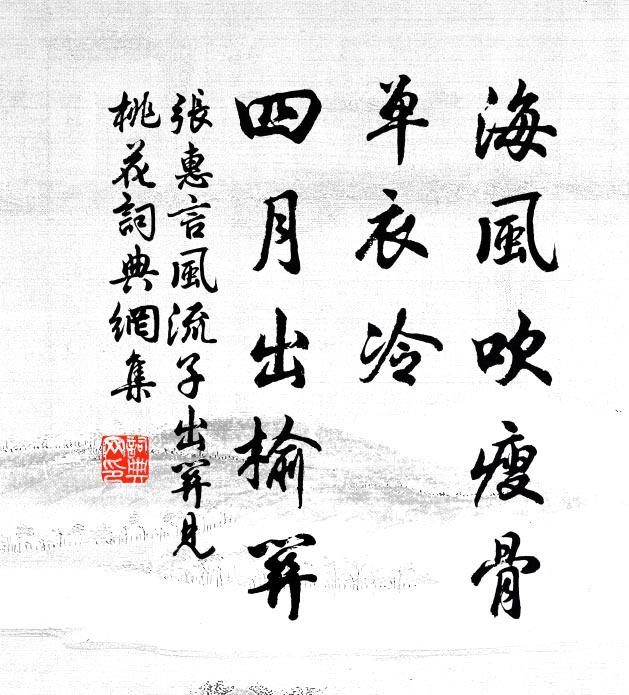 海風吹瘦骨
單衣冷
四月出榆關
張惠言風流子出關見
桃花詞典網集
詞典
網印